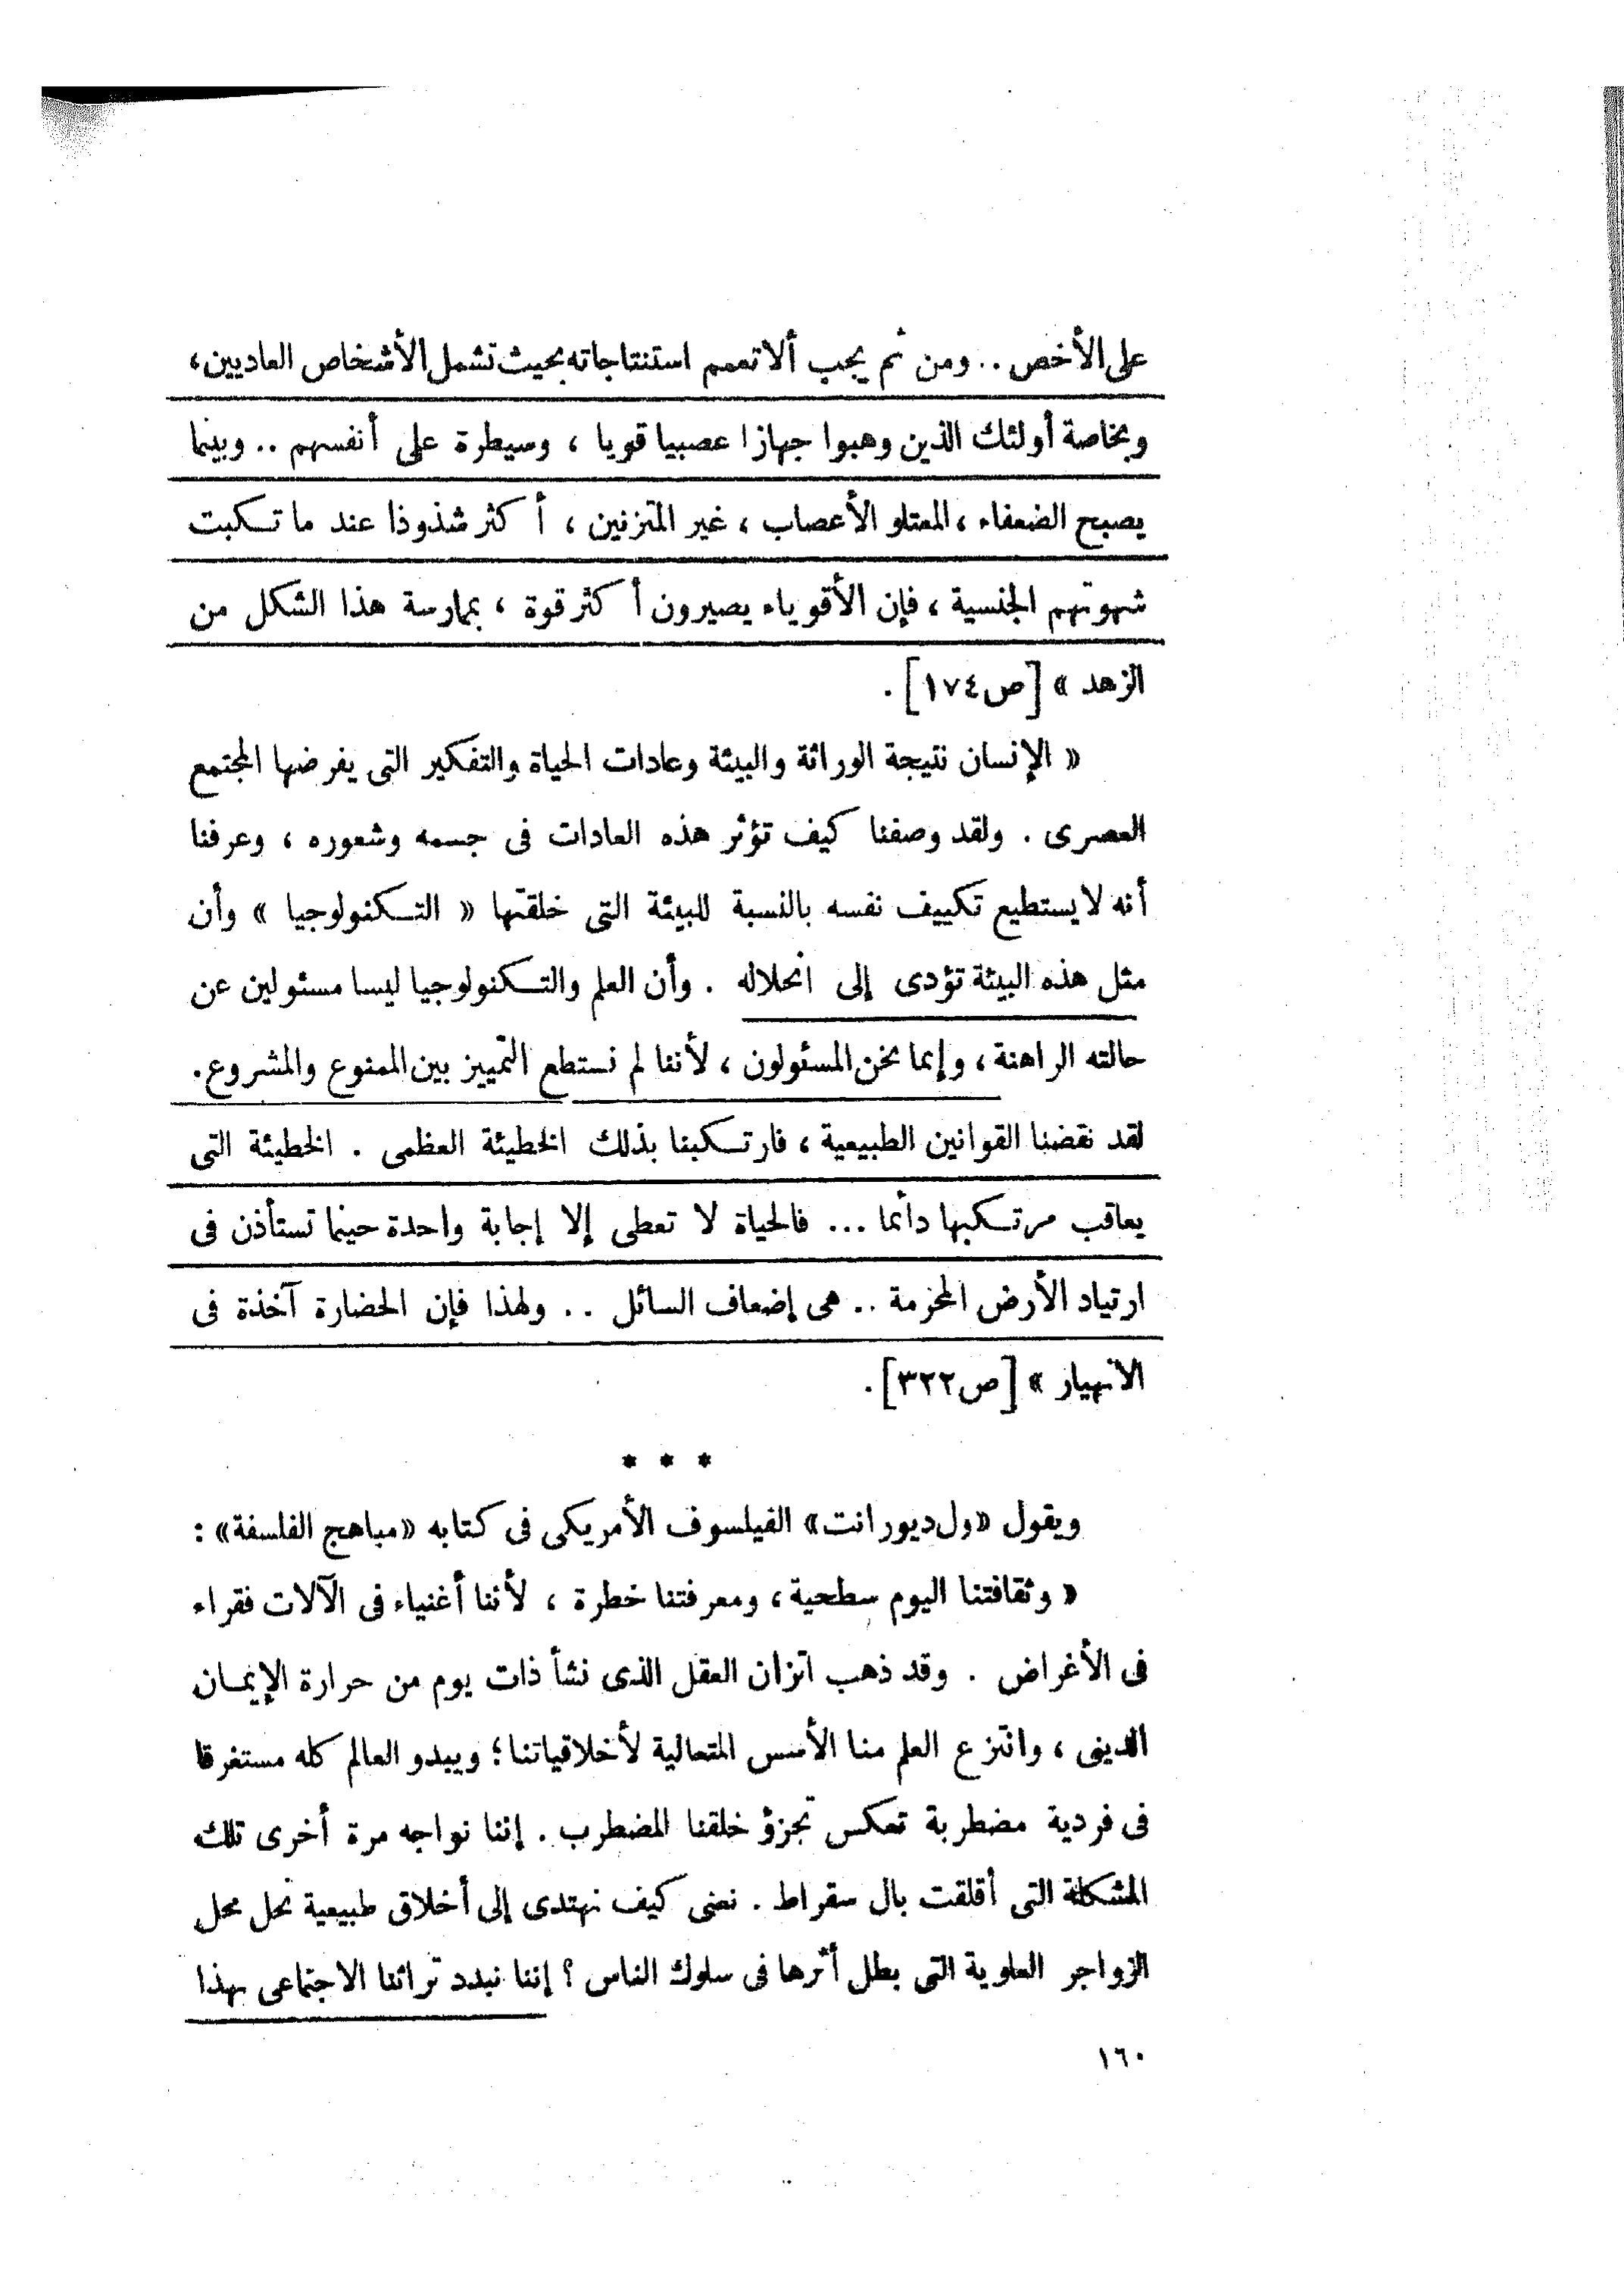 على الأخص .. ومن ثم يجب ألا تعمم استنتاجاته بحيث تشمل الأشخاص العاديين،
وبخاصة أولئك الذين وهبوا جهازا عصبيا قويا ، وسيطرة على أنفسهم .. وبينما
يصبح الضعفاء ، المعتلو الأعصاب ، غير المتزنين ، أكثر شذوذا عند ما تكبت
شهوتهم الجنسية ، فإن الأقوياء يصيرون أكثر قوة ، بممارسة هذا الشكل من
الزهد » [ص١٧٤] .
« الإنسان نتيجة الوراثة والبيئة وعادات الحياة والتفكير التى يفرضها المجتمع
العصرى . ولقد وصفنا كيف تؤثر هذه العادات فى جسمه وشعوره ، وعرفنا
أنه لا يستطيع تكييف نفسه بالنسبة للبيئة التى خلقتها « التكنولوجيا » وأن
مثل هذه البيئة تؤدى إلى انحلاله . وأن العلم والتكنولوجيا ليسا مسئولين عن
حالته الراهنة ، وإنما نحن المسئولون ، لأننا لم نستطع التمييز بين الممنوع والمشروع.
لقد نقضنا القوانين الطبيعية ، فارتكبنا بذلك الخطيئة العظمى . الخطيئة التى
يعاقب مرتكبها دائما ... فالحياة لا تعطى إلا إجابة واحدة حينما تستأذن فى
ارتياد الأرض المحرمة .. هى إضعاف السائل .. ولهذا فإن الحضارة آخذة فى
الانهيار » [ص٣٢٢].
* * *
ويقول «ول ديورانت» الفيلسوف الأمريكى فى كتابه «مباهج الفلسفة» :
« وثقافتنا اليوم سطحية ، ومعرفتنا خطرة ، لأننا أغنياء فى الآلات فقراء
فى الأغراض . وقد ذهب اتزان العقل الذى نشأ ذات يوم من حرارة الإيمان
الدينى ، وانتزع العلم منا الأسس المتعالية لأخلاقياتنا ؛ ويبدو العالم كله مستغرقا
فى فردية مضطربة تعكس تجزؤ خلقنا المضطرب . إننا نواجه مرة أخرى تلك
المشكلة التى أقلقت بال سقراط . نعنى كيف نهتدى إلى أخلاق طبيعية تحل محل
الزواجر العلوية التى بطل أثرها فى سلوك الناس ؟ إننا نبدد تراثنا الاجتماعى بهذا
١٦٠